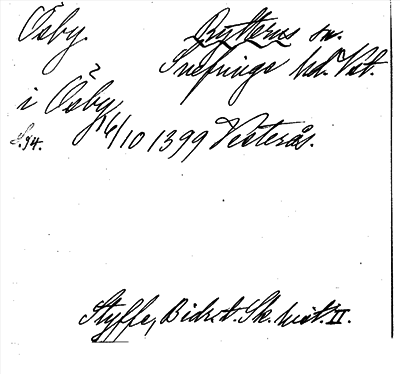 Ösby. Rytterns sn.
Snefringe hd. Vstm.
i Ösby 16/10 1399 Vesterås.
S. 94.
Styffe, Bidr. t. Sk. hist. II.